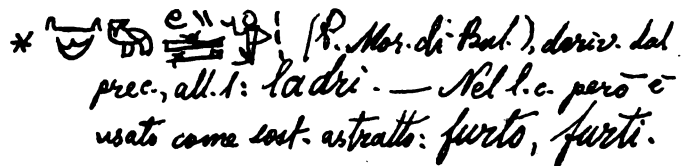 * (P. Mor. di Bul.), deriv. dal
prec., all. l: ladri. — Nel l. c. però è
usato come sost. astratto: furto, furti.